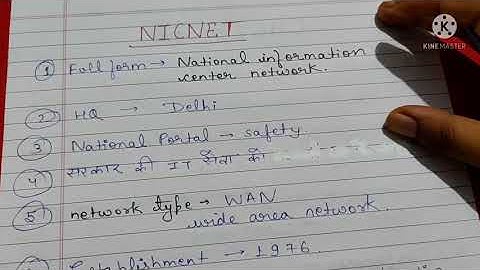 NICNET
KINEMASTER
① Full form → National information
center network.
② HQ → Delhi
③ National Portal → safety
④ सरकार की IT सेवा को
⑤ network type → WAN
wide area network.
Establishment → 1976.